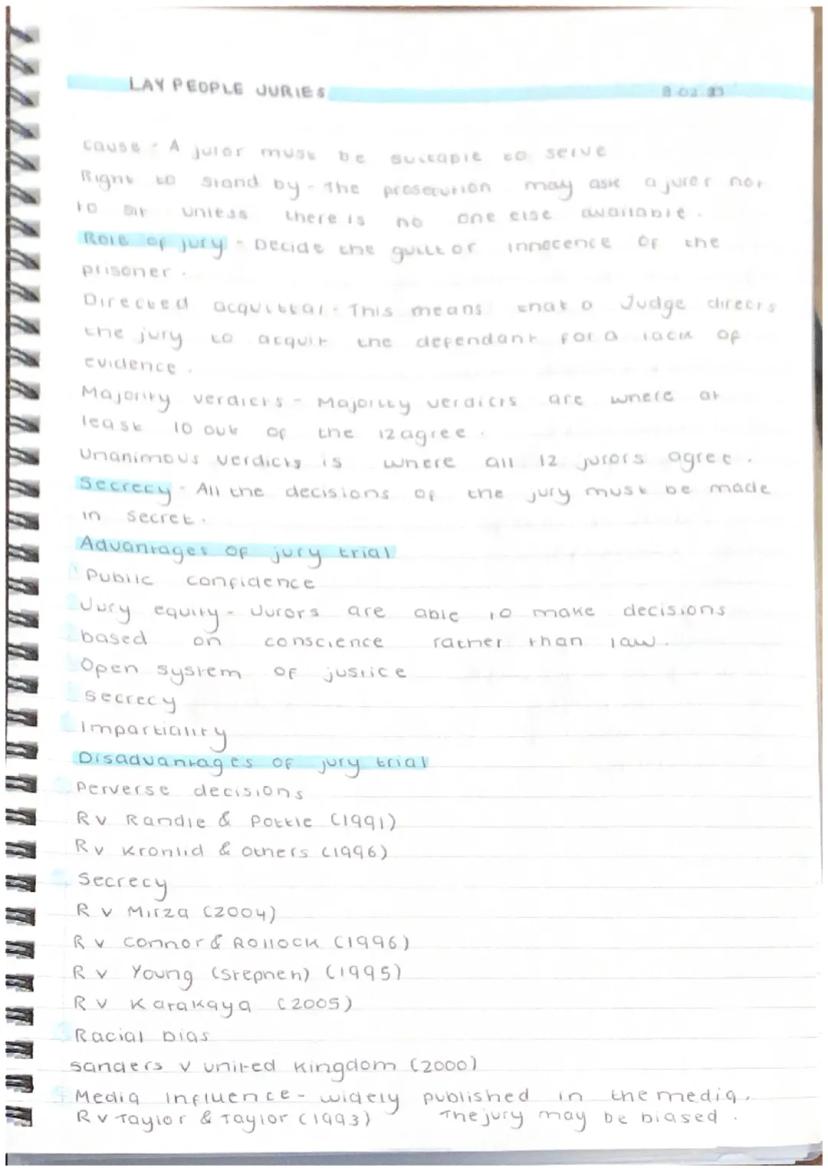 LAY PEOPLE JURIES
cause - A juror must be suitable to serve
Right to stand by - The prosecution may ask a juror not
to sit unless there is no one else available.
Role of jury - Decide the guilt or innocence of the
prisoner.
Directed acquittal - This means that a Judge directs
the jury to acquit the defendant for a lack of
evidence.
Majority verdicts - Majority verdicts are where at
least 10 out of the 12 agree.
Unanimous verdicts is where all 12 jurors agree.
Secrecy - All the decisions of the jury must be made
in secret.
Advantages of jury trial
Public confidence
Jury equity - Jurors are able to make decisions
based on conscience rather than law.
Open system of justice
Secrecy
Impartiality
Disadvantages of jury trial
Perverse decisions
R v Randle & Pottle (1991)
R v Kronlid & Others (1996)
Secrecy
R v Mirza (2004)
R v Connor & Rollock (1996)
R v Young (Stephen) (1995)
R v Karakaya (2005)
Racial bias
Sanders v United Kingdom (2000)
Media Influence - widely published in the media.
R v Taylor & Taylor (1993) The jury may be biased.